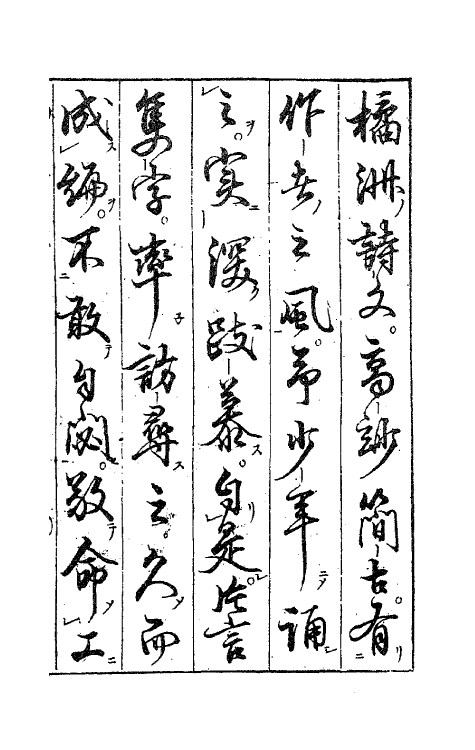 橘洲詩文。高妙簡古。有
作者之風。希少年誦
之。実深跂慕。自是片言
隻字。率訪尋之。久而
成編。不敢自閟。敬命工